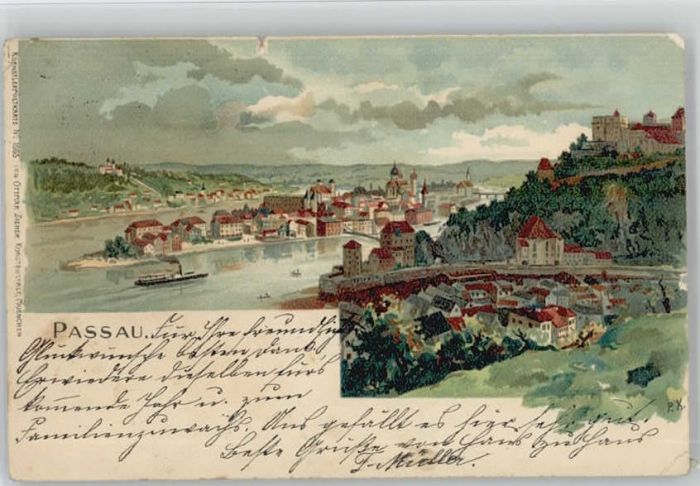 PASSAU. Für Ihre freundlichen
Glückwünsche besten Dank
Erwiedere dieselben fürs
kommende Jahr u. zum
Familienzuwachs. Uns gefällt es hier sehr gut
Beste Grüße von Haus zu Haus
F. Müller.
P. K.
KUENSTLERPOSTKARTE No VON OTTMAR ZIEHER KUNSTANSTALT, MÜNCHEN